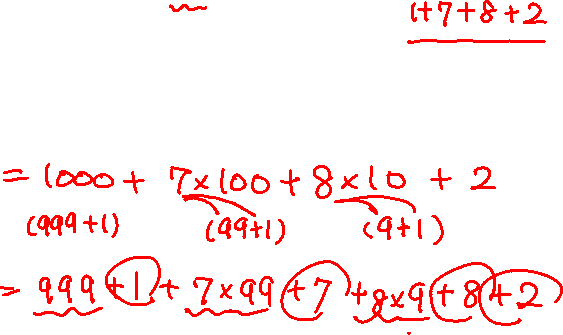 1+7+8+2
= 1000 + 7×100 + 8×10 + 2
(999+1) (99+1) (9+1)
= 999 +1 + 7×99 +7 +8×9 +8 +2